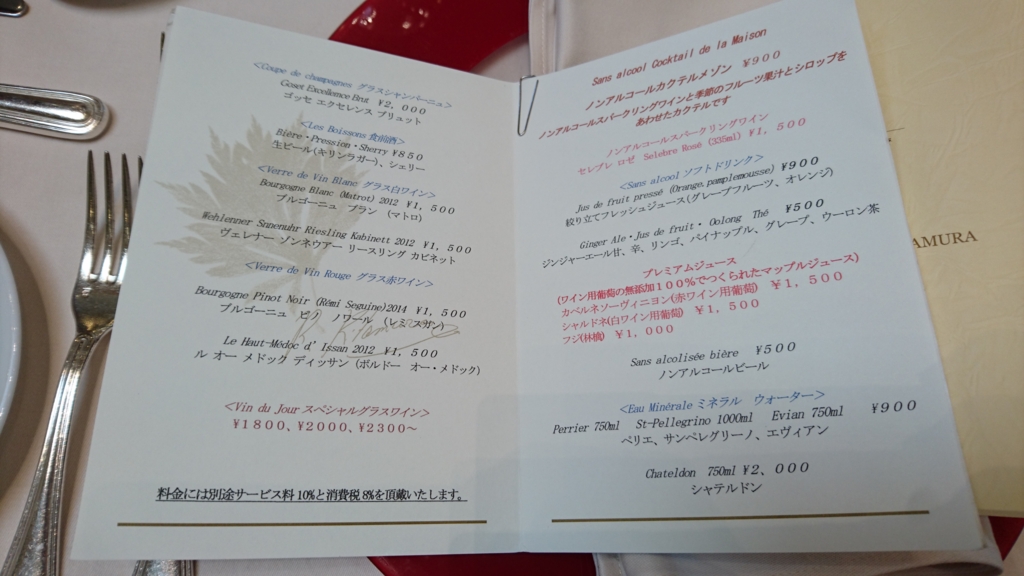 <Coupe de champagnes グラスシャンパーニュ>
Goset Excellence Brut ¥2,000
ゴッセ エクセレンス ブリュット
<Les Boissons 食前酒>
Biere・Pression・Sherry ¥850
生ビール(キリンラガー)、シェリー
<Verre de Vin Blanc グラス白ワイン>
Bourgogne Blanc (Matrot) 2012 ¥1,500
ブルゴーニュ ブラン (マトロ)
Wehlenner Snnenuhr Riesling Kabinett 2012 ¥1,500
ヴェレナー ゾンネウアー リースリング カビネット
<Verre de Vin Rouge グラス赤ワイン>
Bourgogne Pinot Noir (Rémi Seguine)2014 ¥1,500
ブルゴーニュ ピノ ノワール (レミ スガン)
Le Haut-Médoc d' Issan 2012 ¥1,500
ル オー メドック ディッサン (ボルドー オー・メドック)
<Vin du Jour スペシャルグラスワイン>
¥1800、¥2000、¥2300～
料金には別途サービス料10%と消費税8%を頂戴いたします。
Sans alcool Cocktail de la Maison
ノンアルコールカクテルメゾン ¥900
ノンアルコールスパークリングワインと季節のフルーツ果汁とシロップを
あわせたカクテルです
ノンアルコールスパークリングワイン
セレブレ ロゼ Selebre Rosé (335ml) ¥1,500
<Sans alcool ソフトドリンク>
Jus de fruit pressé (Orange.pamplemousse) ¥900
絞り立てフレッシュジュース(グレープフルーツ、オレンジ)
Ginger Ale・Jus de fruit・ Oolong Thé ¥500
ジンジャーエール甘、辛、リンゴ、パイナップル、グレープ、ウーロン茶
プレミアムジュース
(ワイン用葡萄の無添加100%でつくられたマップルジュース)
カベルネソーヴィニヨン(赤ワイン用葡萄) ¥1,500
シャルドネ(白ワイン用葡萄) ¥1,500
フジ(林檎) ¥1,000
Sans alcolisée bière ¥500
ノンアルコールビール
<Eau Minérale ミネラル ウォーター>
Perrier 750ml St-Pellegrino 1000ml Evian 750ml ¥900
ペリエ、サンペレグリーノ、エヴィアン
Chateldon 750ml ¥2,000
シャテルドン
AMURA